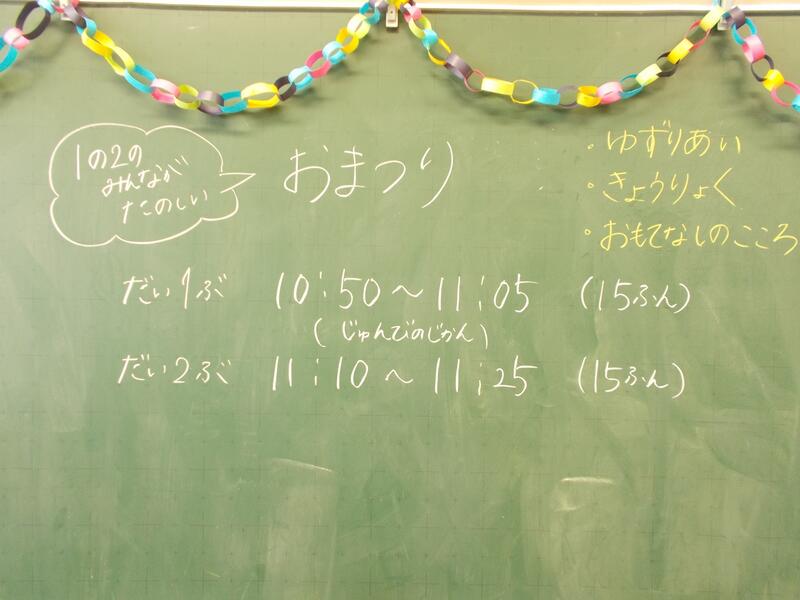 1の2の
みんなが
たのしい
おまつり
・ゆずりあい
・きょうりょく
・おもてなしのこころ
だい1ぶ 10:50～11:05 (15ふん)
(じゅんびのじかん)
だい2ぶ 11:10～11:25 (15ふん)